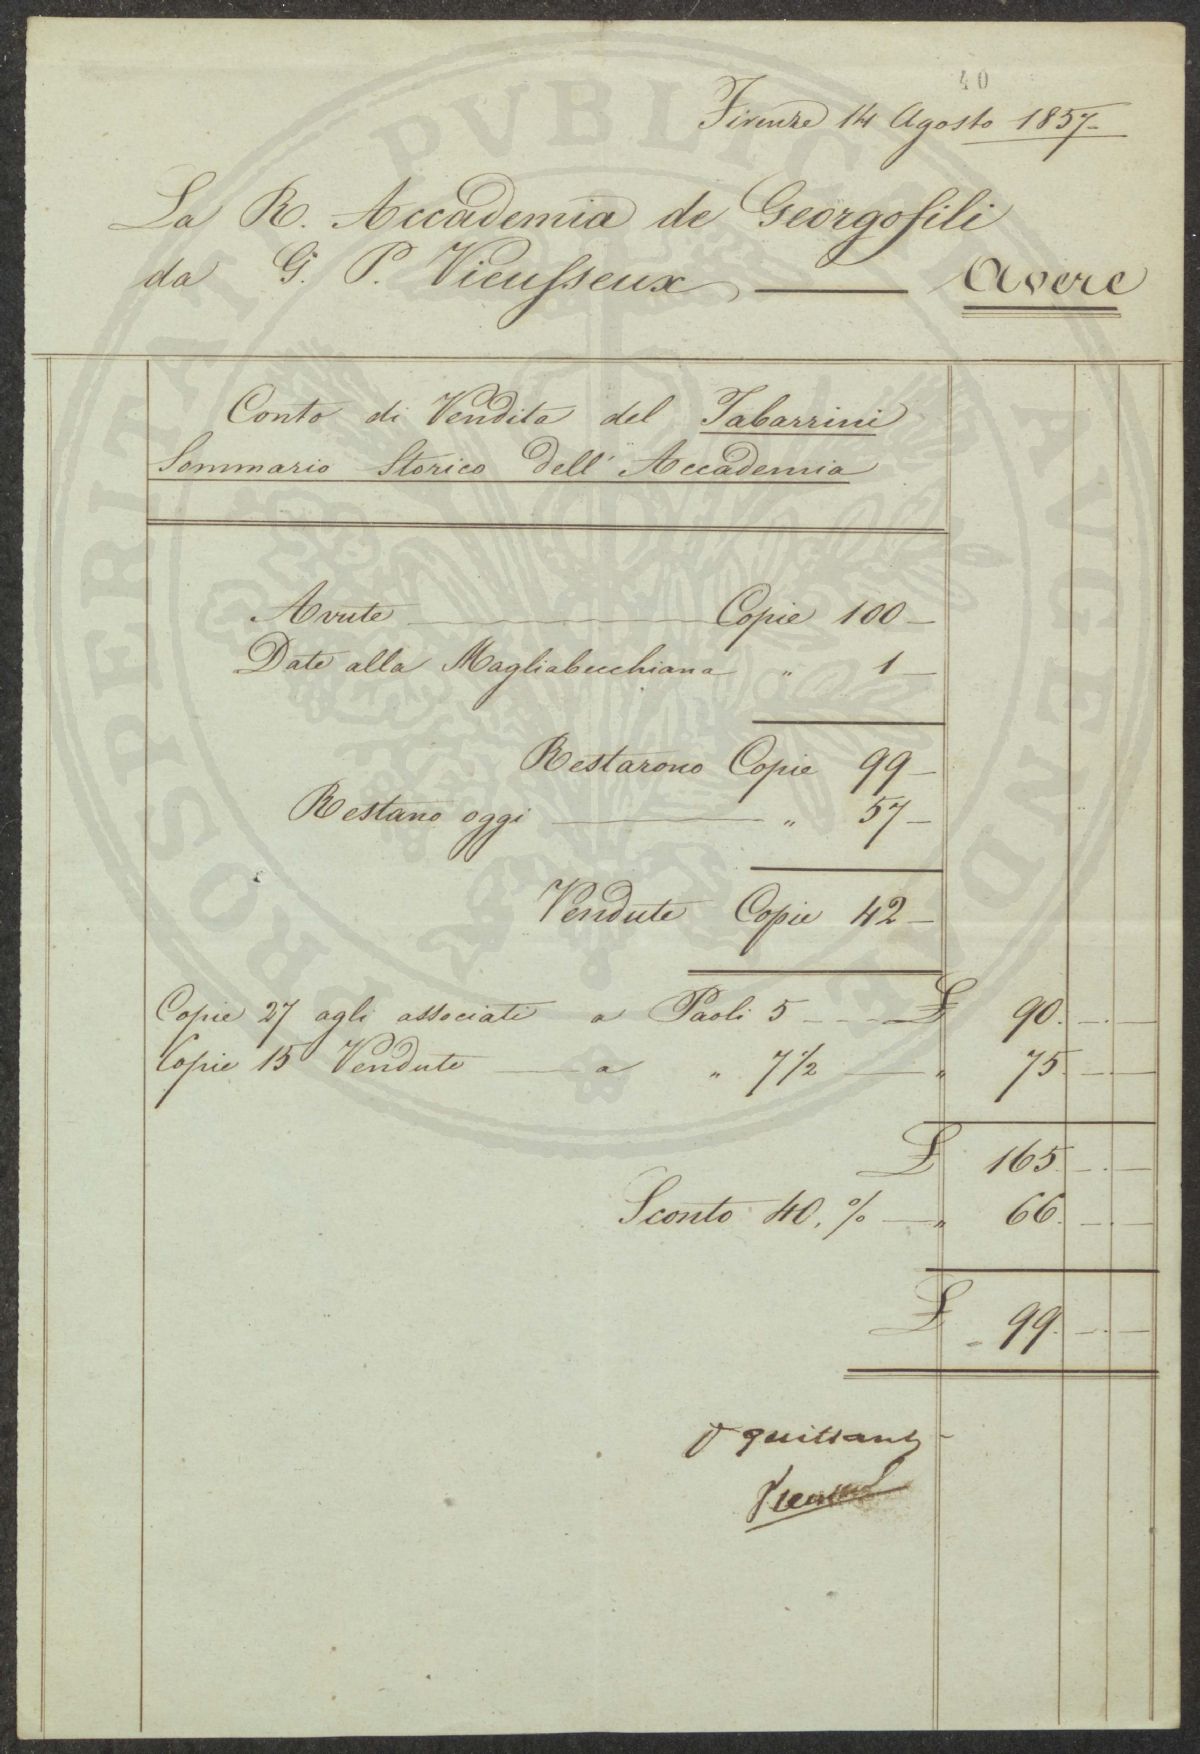 40
Firenze 14 Agosto 1857
La R. Accademia de Georgofili
da G. P. Vieusseux — Avere
Conto di Vendita del Tabarrini
Sommario Storico dell'Accademia
Avute — Copie 100 —
Date alla Magliabecchiana " 1 —
Restarono Copie 99 —
Restano oggi — " 57 —
Vendute Copie 42 —
Copie 27 agli associati a Paoli 5 — £ 90. —. —
Copie 15 Vendute — a " 7 1/2 — " 75. —. —
£ 165. —. —
Sconto 40. % — " 66. —. —
£ 99. —. —
quittanz
Vieusseux
PROSPERITATI PVBLICAE AVGENDAE